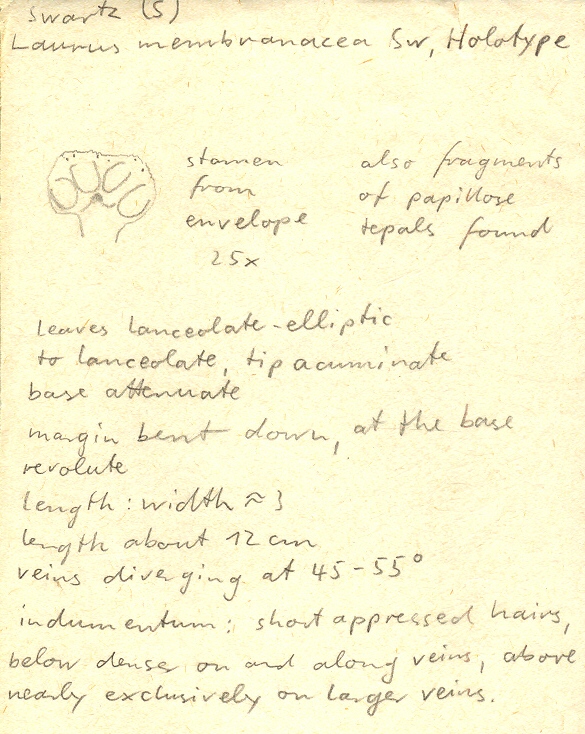 Swartz (S)
Laurus membranacea Sw, Holotype
stamen
from
envelope
25x
also fragments
of papillose
tepals found
leaves lanceolate-elliptic
to lanceolate, tip acuminate
base attenuate
margin bent down, at the base
revolute
length : width ≈ 3
length about 12 cm
veins diverging at 45-55°
indumentum: short appressed hairs,
below denser on and along veins, above
nearly exclusively on larger veins.